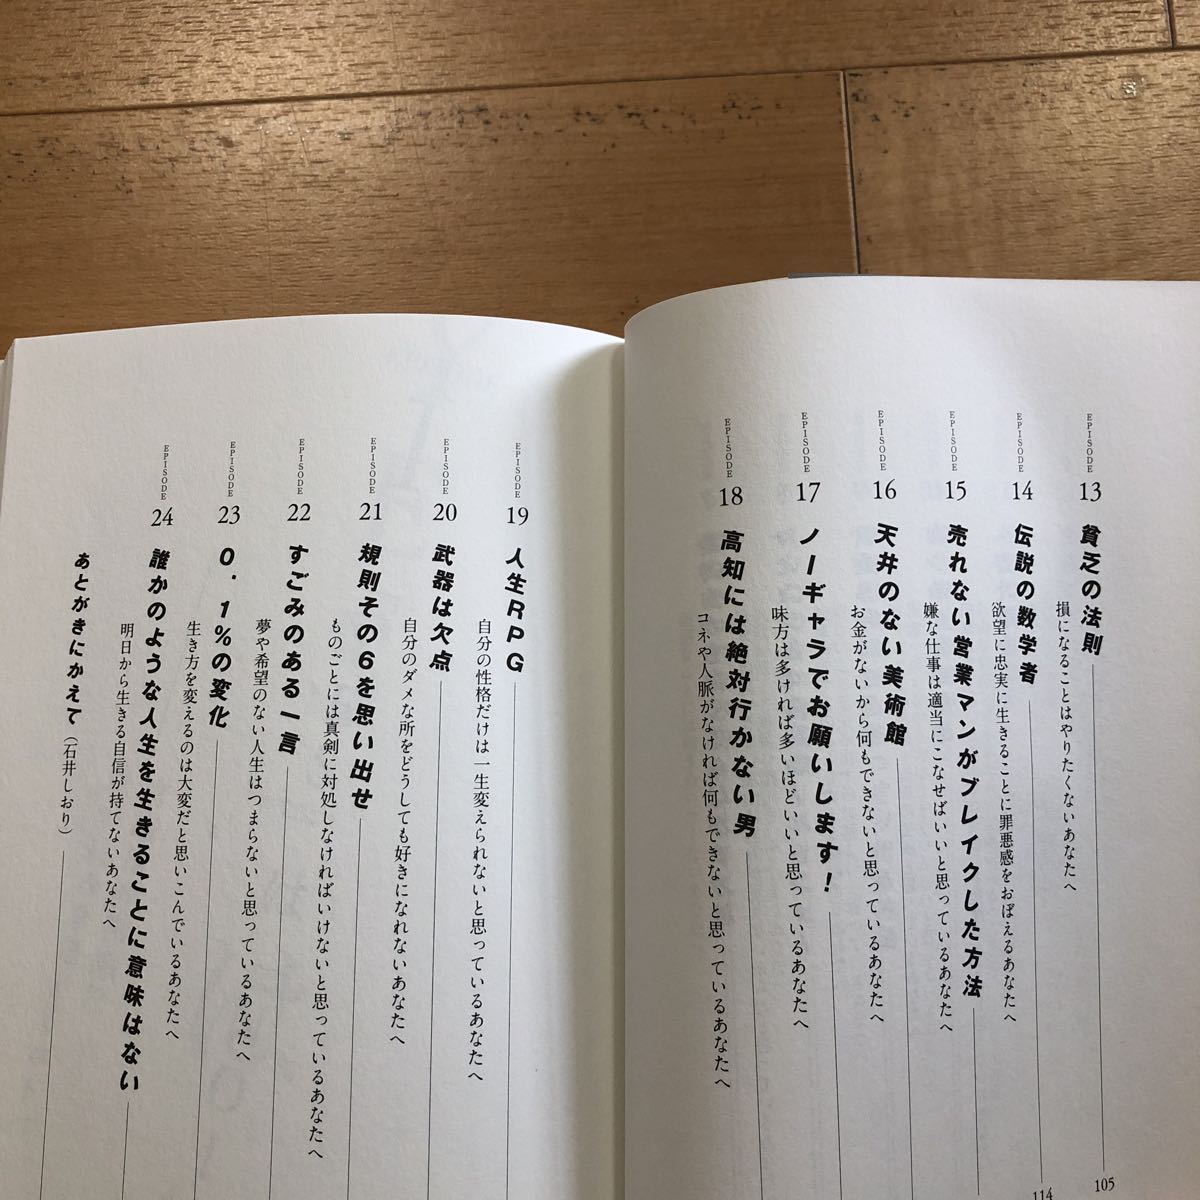 EPISODE 13 貧乏の法則 105
損になることはやりたくないあなたへ
EPISODE 14 伝説の数学者 114
欲望に忠実に生きることに罪悪感をおぼえるあなたへ
EPISODE 15 売れない営業マンがブレイクした方法
嫌な仕事は適当にこなせばいいと思っているあなたへ
EPISODE 16 天井のない美術館
お金がないから何もできないと思っているあなたへ
EPISODE 17 ノーギャラでお願いします!
味方は多ければ多いほどいいと思っているあなたへ
EPISODE 18 高知には絶対行かない男
コネや人脈がなければ何もできないと思っているあなたへ
EPISODE 19 人生RPG
自分の性格だけは一生変えられないと思っているあなたへ
EPISODE 20 武器は欠点
自分のダメな所をどうしても好きになれないあなたへ
EPISODE 21 規則その6を思い出せ
ものごとには真剣に対処しなければいけないと思っているあなたへ
EPISODE 22 すごみのある一言
夢や希望のない人生はつまらないと思っているあなたへ
EPISODE 23 0.1%の変化
生き方を変えるのは大変だと思いこんでいるあなたへ
EPISODE 24 誰かのような人生を生きることに意味はない
明日から生きる自信が持てないあなたへ
あとがきにかえて(石井しおり)